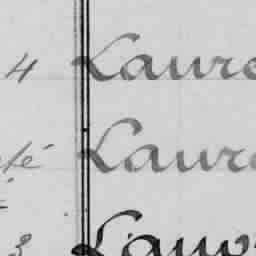 4 Laure
té Laure
3 Laure